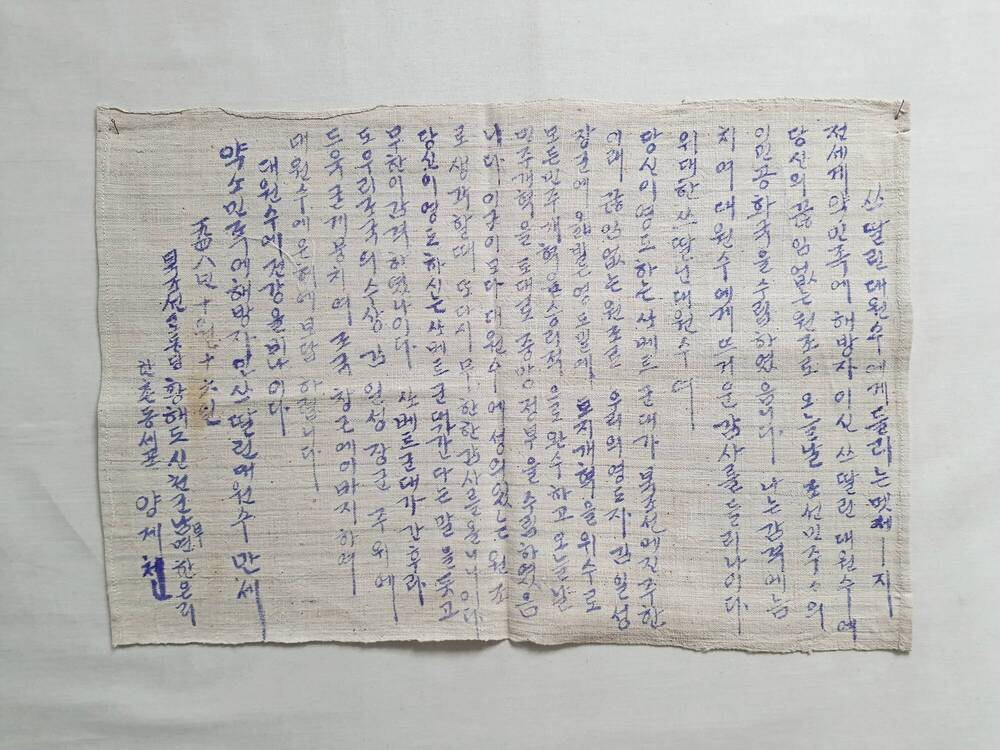 쓰딸린대원수에게들리는멧세—지
전세게약민족에해방자이신쓰딸린대원수에
당신의끊임없는원조로오늘날조선민주주의
인민공화국을수립하였읍니다 나는감격에넘
치여대원수에게뜨거운감사를들리나이다
위대한쓰딸린대원수여
당신이영도하는쏘베트군대가북조선에진주한
이래끊임없는원조로우리의영도자김일성
장군에영도밑에토지개혁을위수로
모든민주개혁을승리적으로완수하고오늘날
민주개혁을토대로중앙정부을수립하였음
니다이곳이모다대원수에성의있는원조
로생각할때또다시무한한감사를올니이다
당신이영도하시는쏘베트군대가다는말을듯고
무한이감격하였나이다 쏘베트군대가간후라
도우리조국의수상김일성장군주위에
드욱굳게뭉치여조국창건에이바지하며
대원수에은헤에보답하렴니다
대원수에건강을비나이다
약소민족에해방자인쓰딸린대원수만세
一九四八년十월十六일
북조선로동당황해도신천군남부면한은리
한촌동세포 양제현